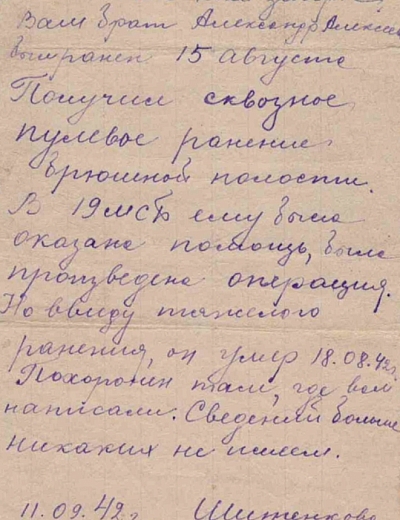 Ваш брат Александр Алексее
был ранен 15 августа
Получил сквозное
пулевое ранение
брюшной полости.
В 19 мсб ему была
оказана помощь, была
произведена операция.
Но ввиду тяжелого
ранения, он умер 18.08.42г.
Похоронен там, где вам
написали. Сведений больше
никаких не имеем.
11.09.42г. Шитенкова